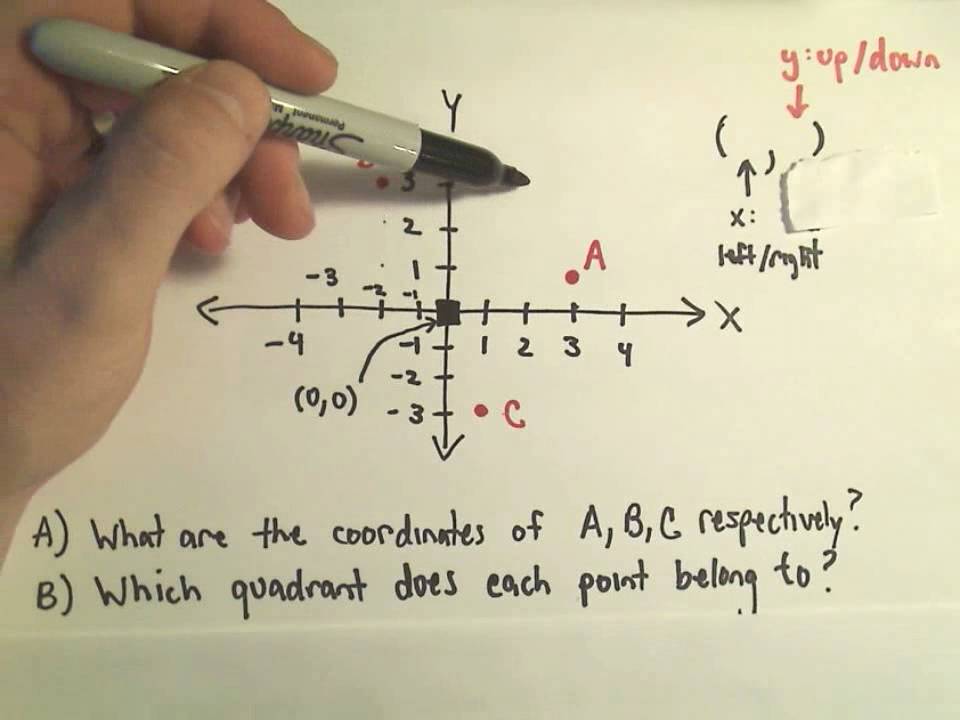 y: up/down
Y
( , )
x:
left/right
Sharpie
Permanent
3
2
1
A
-3
-2
-1
X
-4
-1
1
2
3
4
-2
(0,0)
-3
C
A) What are the coordinates of A, B, C respectively?
B) Which quadrant does each point belong to?